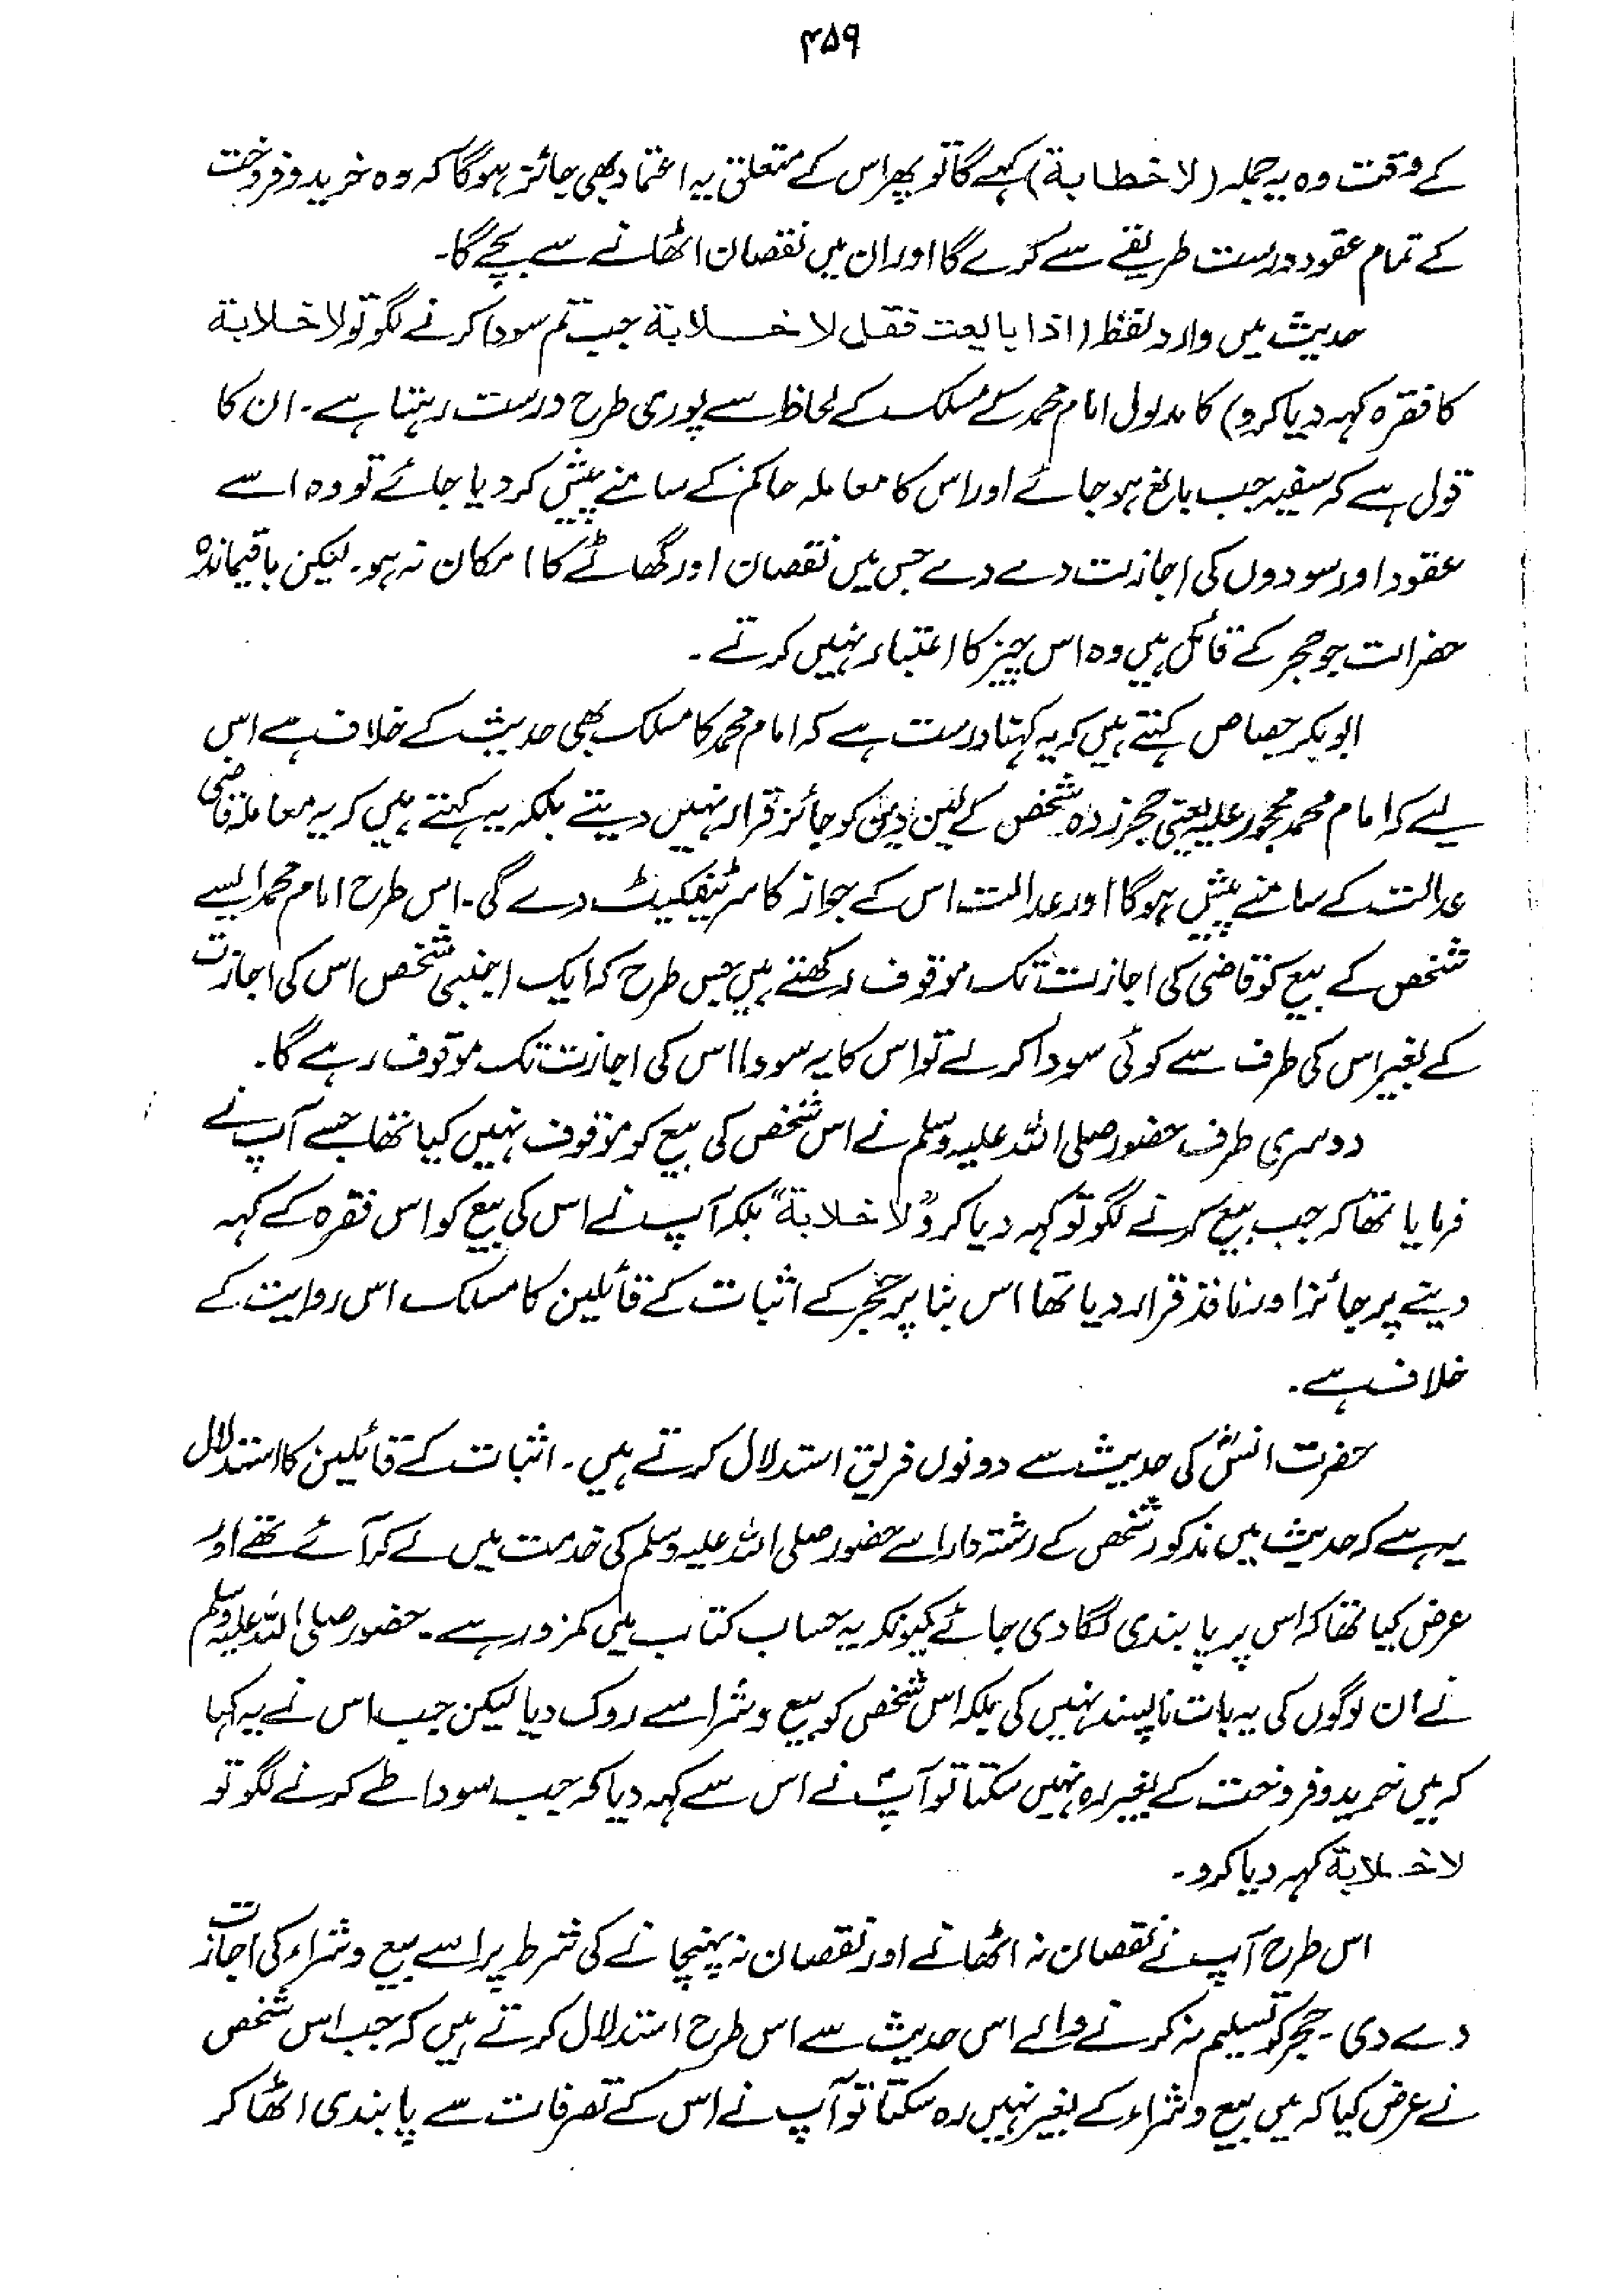 ۴۵۹
کے وقت وہ یہ جملہ (لا خطابة) کہے گا تو پھر اس کے متعلق یہ اعتماد بھی جائز ہوگا کہ وہ خرید و فروخت
کے تمام عقود درست طریقے سے کرے گا اور ان میں نقصان اٹھانے سے بچے گا۔
حدیث میں وارد لفظ (اذا بایعت فقل لا خلابة جب تم سودا کرنے لگو تو لا خلابة
کا فقرہ کہہ دیا کرو) کا مدلول امام محمد کے مسلک کے لحاظ سے پوری طرح درست رہتا ہے۔ ان کا
قول ہے کہ سفیہ جب بالغ ہو جائے اور اس کا معاملہ حاکم کے سامنے پیش کر دیا جائے تو وہ اسے
عقود اور سودوں کی اجازت دے دے جس میں نقصان اور گھاٹے کا امکان نہ ہو۔ لیکن باقیماندہ
حضرات جو حجر کے قائل ہیں وہ اس چیز کا اعتبار نہیں کرتے۔
ابوبکر جصاص کہتے ہیں کہ یہ کہنا درست ہے کہ امام محمد کا مسلک بھی حدیث کے خلاف ہے اس
لیے کہ امام محمد محجور علیہ یعنی حجر زدہ شخص کے لین دین کو جائز قرار نہیں دیتے بلکہ یہ کہتے ہیں کہ یہ معاملہ قاضی
عدالت کے سامنے پیش ہوگا اور عدالت اس کے جواز کا سرٹیفکیٹ دے گی۔ اس طرح امام محمد ایسے
شخص کے بیع کو قاضی کی اجازت تک موقوف رکھتے ہیں جس طرح کہ ایک اجنبی شخص اس کی اجازت
کے بغیر اس کی طرف سے کوئی سودا کر لے تو اس کا یہ سودا اس کی اجازت تک موقوف رہے گا۔
دوسری طرف حضور صلی اللہ علیہ وسلم نے اس شخص کی بیع کو موقوف نہیں کیا تھا جسے آپ نے
فرمایا تھا کہ جب بیع کرنے لگو تو کہہ دیا کرو "لا خلابة" بلکہ آپ نے اس کی بیع کو اس فقرہ کے کہہ
دینے پر جائز اور نافذ قرار دیا تھا اس بنا پر حجر کے اثبات کے قائلین کا مسلک اس روایت کے
خلاف ہے۔
حضرت انسؓ کی حدیث سے دونوں فریق استدلال کرتے ہیں۔ اثبات کے قائلین کا استدلال
یہ ہے کہ حدیث میں مذکور شخص کے رشتہ دار اسے حضور صلی اللہ علیہ وسلم کی خدمت میں لے کر آئے تھے اور
عرض کیا تھا کہ اس پر پابندی لگا دی جائے کیونکہ یہ حساب کتاب میں کمزور ہے۔ حضور صلی اللہ علیہ وسلم
نے ان لوگوں کی یہ بات ناپسند نہیں کی بلکہ اس شخص کو بیع و شرا سے روک دیا لیکن جب اس نے یہ کہا
کہ میں خرید و فروخت کے بغیر رہ نہیں سکتا تو آپؐ نے اس سے کہہ دیا کہ جب سودا طے کرنے لگو تو
لا خلابة کہہ دیا کرو۔
اس طرح آپ نے نقصان نہ اٹھانے اور نقصان نہ پہنچانے کی شرط پر اسے بیع و شراء کی اجازت
دے دی۔ حجر کو تسلیم نہ کرنے والے اس حدیث سے اس طرح استدلال کرتے ہیں کہ جب اس شخص
نے عرض کیا کہ میں بیع و شراء کے بغیر نہیں رہ سکتا تو آپ نے اس کے تصرفات سے پابندی اٹھا کر